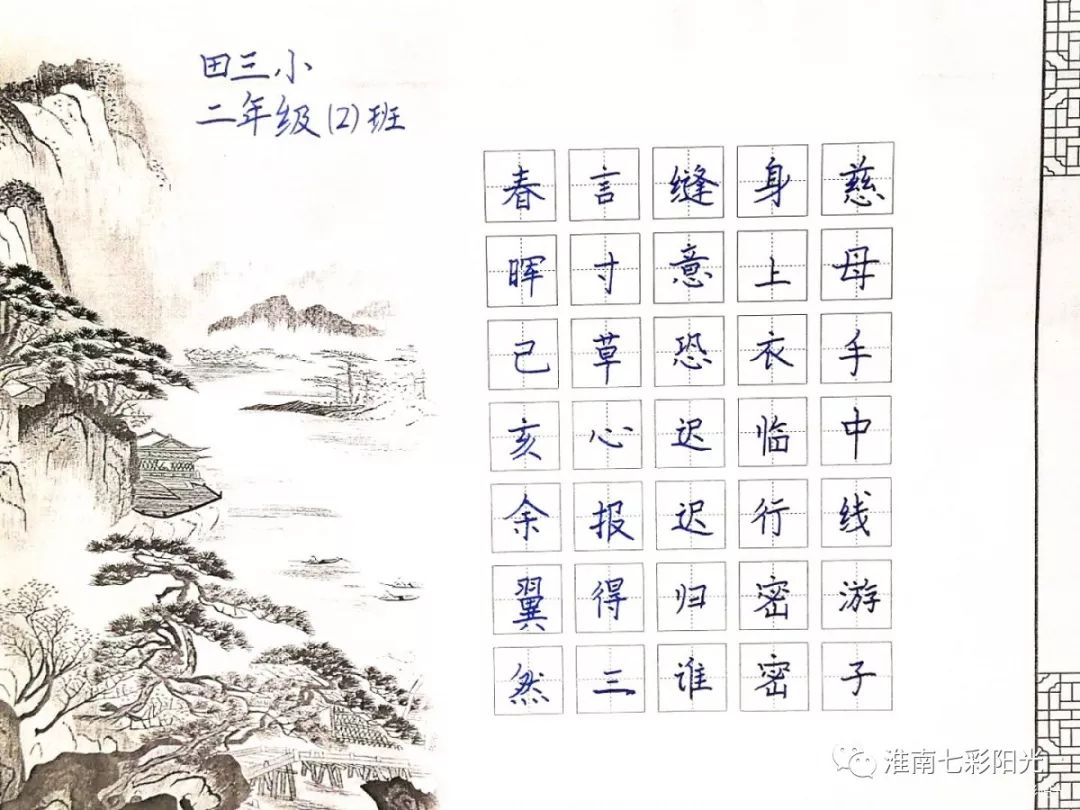 田三小
二年级(2)班
慈母手中线游子
身上衣临行密密
缝意恐迟迟归谁
言寸草心报得三
春晖己亥余翼然
淮南七彩阳光